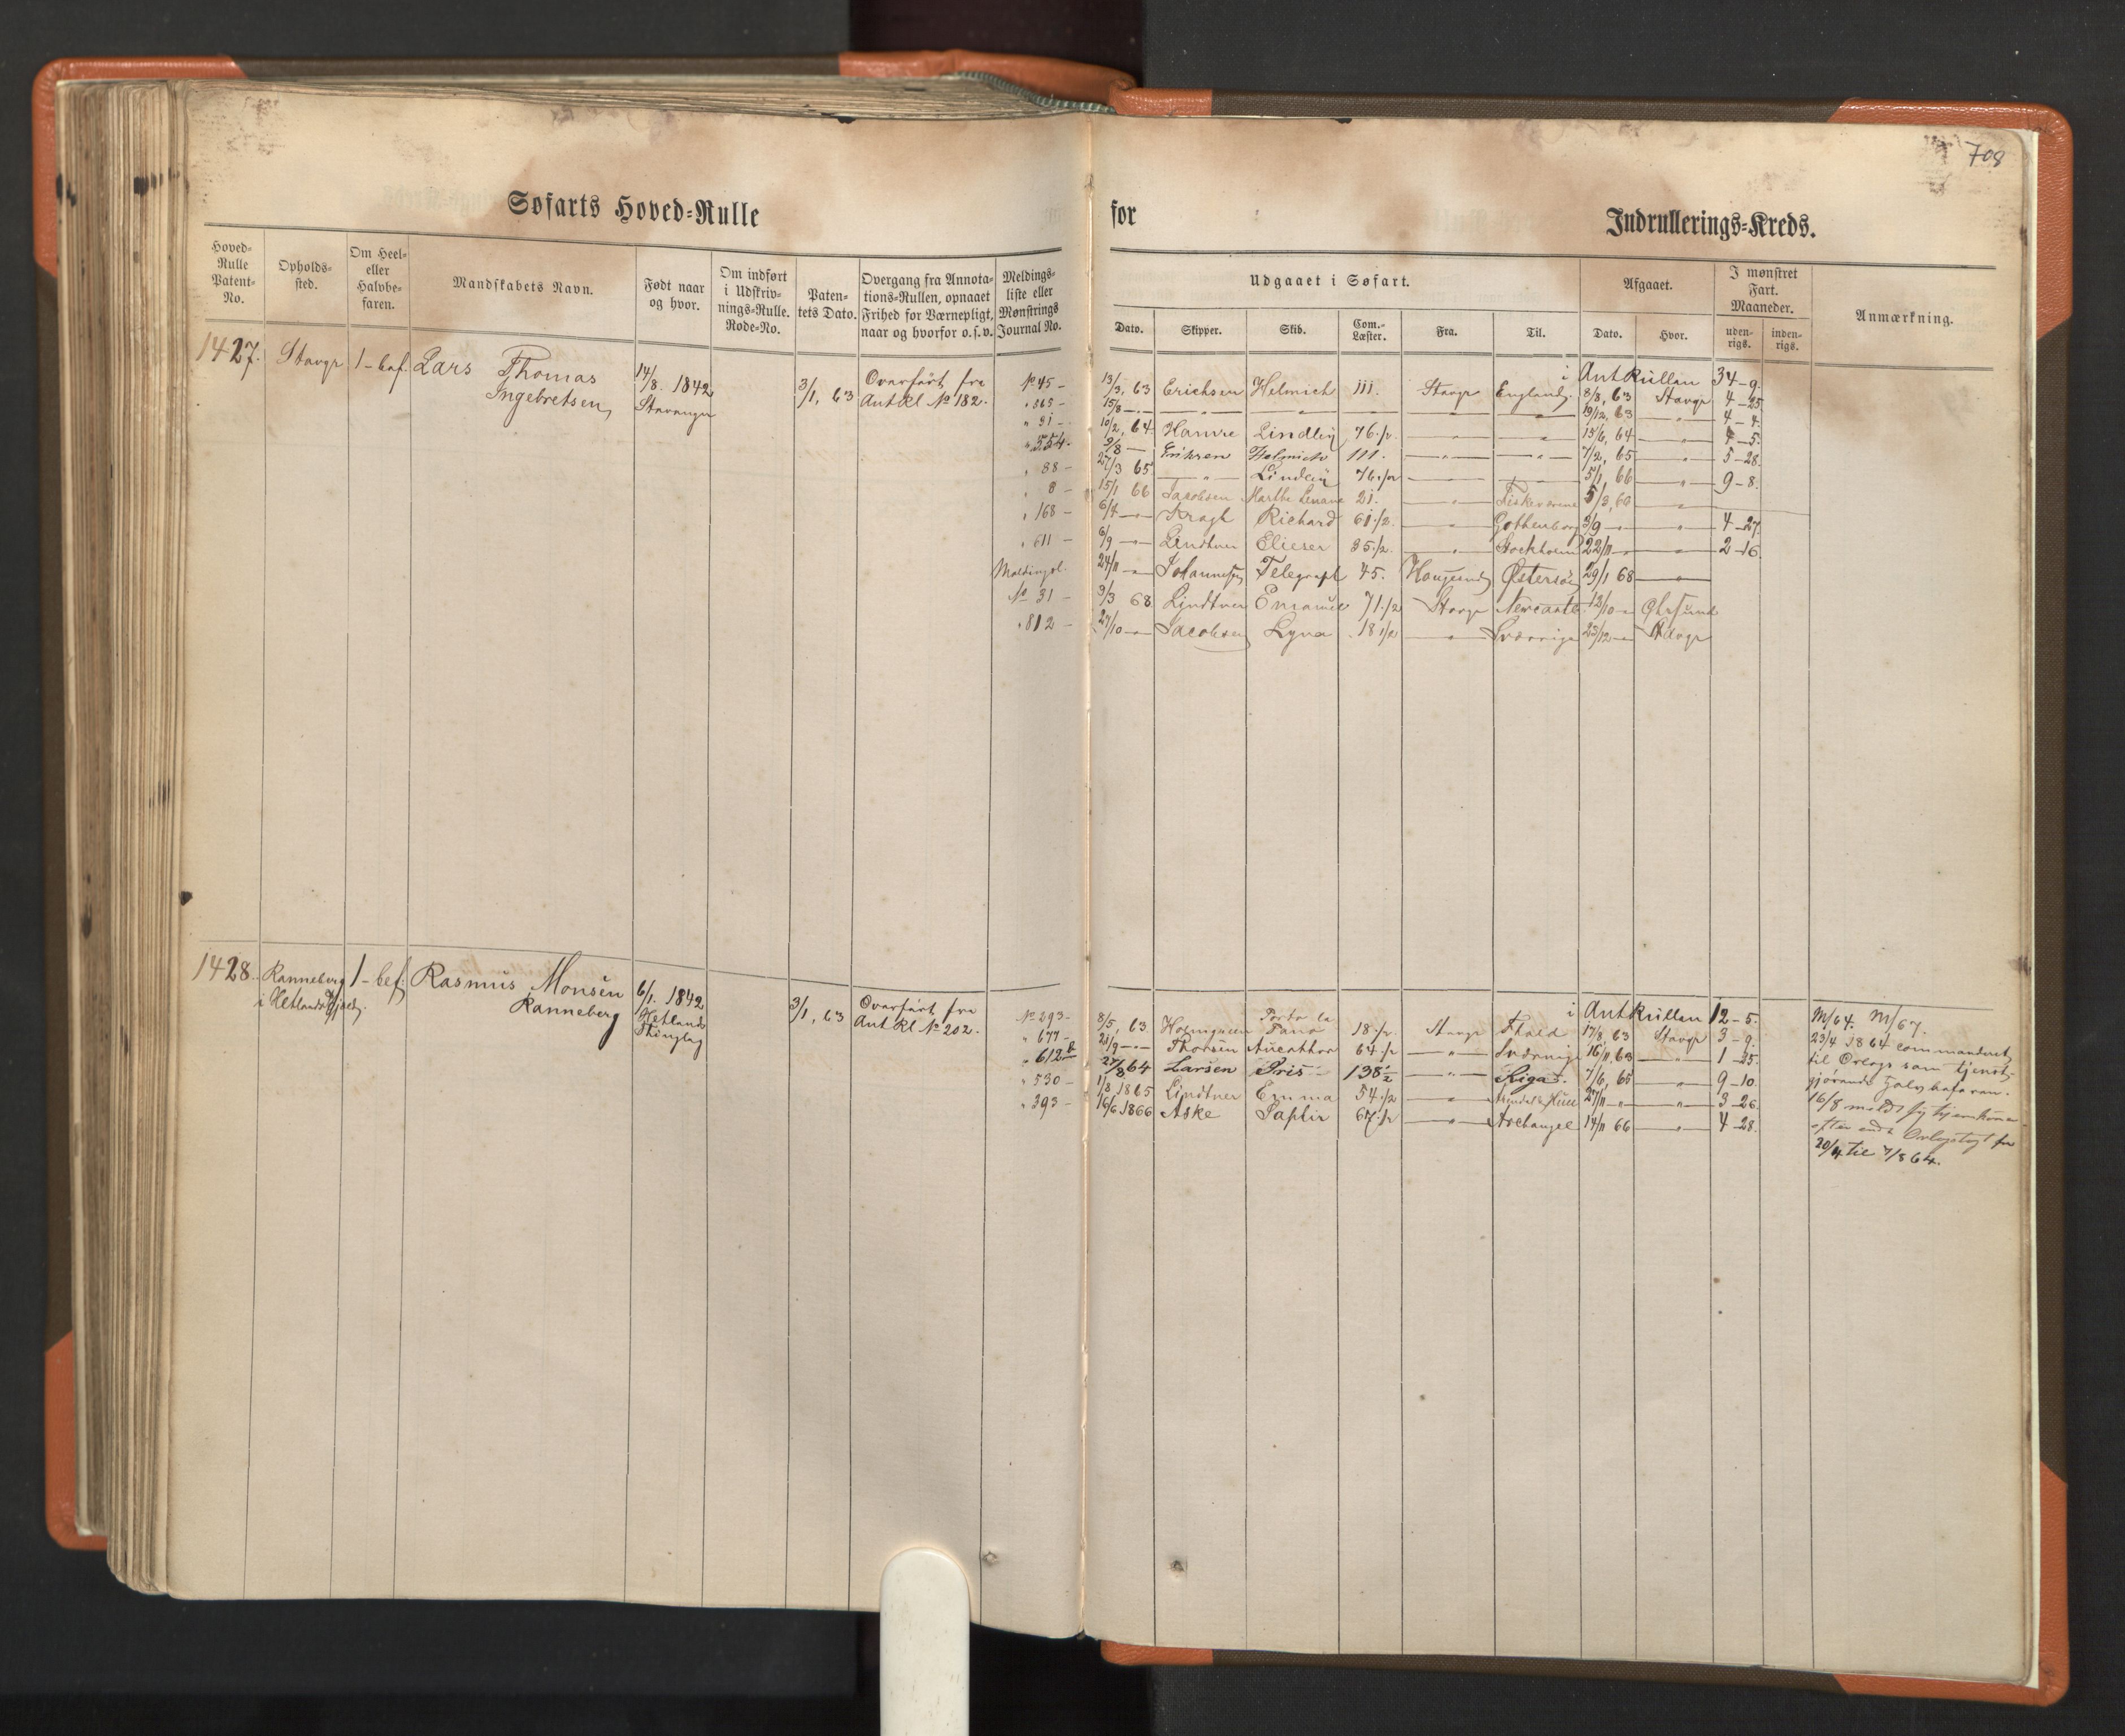 708
Søfarts Hoved=Rulle for Indrullerings=Kreds.
Hoved=Rulle Patent=No.
Opholds=sted.
Om Heel= eller Halvbe=faren.
Mandskabets Navn.
Født naar og hvor.
Om indført i Udskriv=nings=Rulle. Rode=No.
Paten=tets Dato.
Overgang fra Annota=tions=Rullen, opnaaet Frihed for Værnepligt, naar og hvorfor o.s.v.
Meldings=liste eller Mønstrings Journal No.
Udgaaet i Søfart.
Dato. Skipper. Skib. Com.=Læster. Fra. Til.
Afgaaet.
Dato. Hvor.
I mønstret Fart. Maaneder.
uden=rigs. inden=rigs.
Anmærkning.
1427. Stavgr 1-bef. Lars Thomas
Ingebretsen,
14/8. 1842
Stavanger
3/1, 63
Overført fra
Ant Rl No 182.
i Ant Rullen 34-9.
No 45- 13/3, 63 Erichsen Helmich 111. Stavgr England 8/8, 63 Stavgr 4-25
" 365- 15/8 -"- -"- -"- -"- 19/12, 63 -"- 4-4.
" 31- 10/2, 64 Hamre Lindley 76 1/2 -"- -"- 15/6, 64 -"- 4-5.
" 554. 9/8 - Eriksen Helmich 111. -"- -"- 7/2, 65 -"- 5-28
" 88- 27/3 65 -"- Lindley 76 1/2 -"- 5/1, 66 -"- 9-8.
" 8- 15/1 66 Jacobsen Marthe Lenane 21. -"- Fiskeværene 5/3, 66
" 168- 6/4 -"- Kragh Richard 61 1/2 -"- Gothenborg 3/9 -"- -"- 4-27
" 611- 6/9 -"- Lindtner Elieser 35 1/2. -"- Stockholm 22/11 -"- -"- 2-16.
Meldingsl. 24/11 -"- Johannesen Telegraph 45. Haugesund Østersøe 29/1 68 -"-
No 31- 3/3 68. Lindtner Emanuel 71 1/2 Stavgr Newcastle 12/10 -"-
" 812- 27/10 -"- Jacobsen Lyna 18 1/2 -"- Sverrige 23/12 -"- Stavgr
1428. Ranneberg
i Hetlands
1-bef. Rasmus Monsen
Ranneberg
6/1. 1842
Hetlands
Thinglag
3/1, 63
Overført fra
Ant Rl No 202.
i Ant Rullen 12-5.
No 293- 8/5, 63 18 1/2 Stavgr 17/8, 63 Stavgr 3-9.
" 677- 21/9 -"- Thorsen 64 1/2 -"- Sverrige 16/11, 63 -"- 1-25.
" 612 27/8 64 Larsen Pris 138 1/2 -"- Riga 7/6, 65 -"- 9-10.
" 530- 1/8 1865 Lindtner Emma 54 1/2 -"- 27/11 -"- -"- 3-26.
" 393- 16/6 1866 Aske Saphir 67 1/2 -"- Archangel 14/11 66 -"- 4-28.
M/64. M/67.
23/4 1864 commanderet
til Orlogs som tjenst
gjørende halvbefaren.
16/8 meldt sig hjemkom
efter endt Orlogstogt fra
20/4 til 7/8 64.